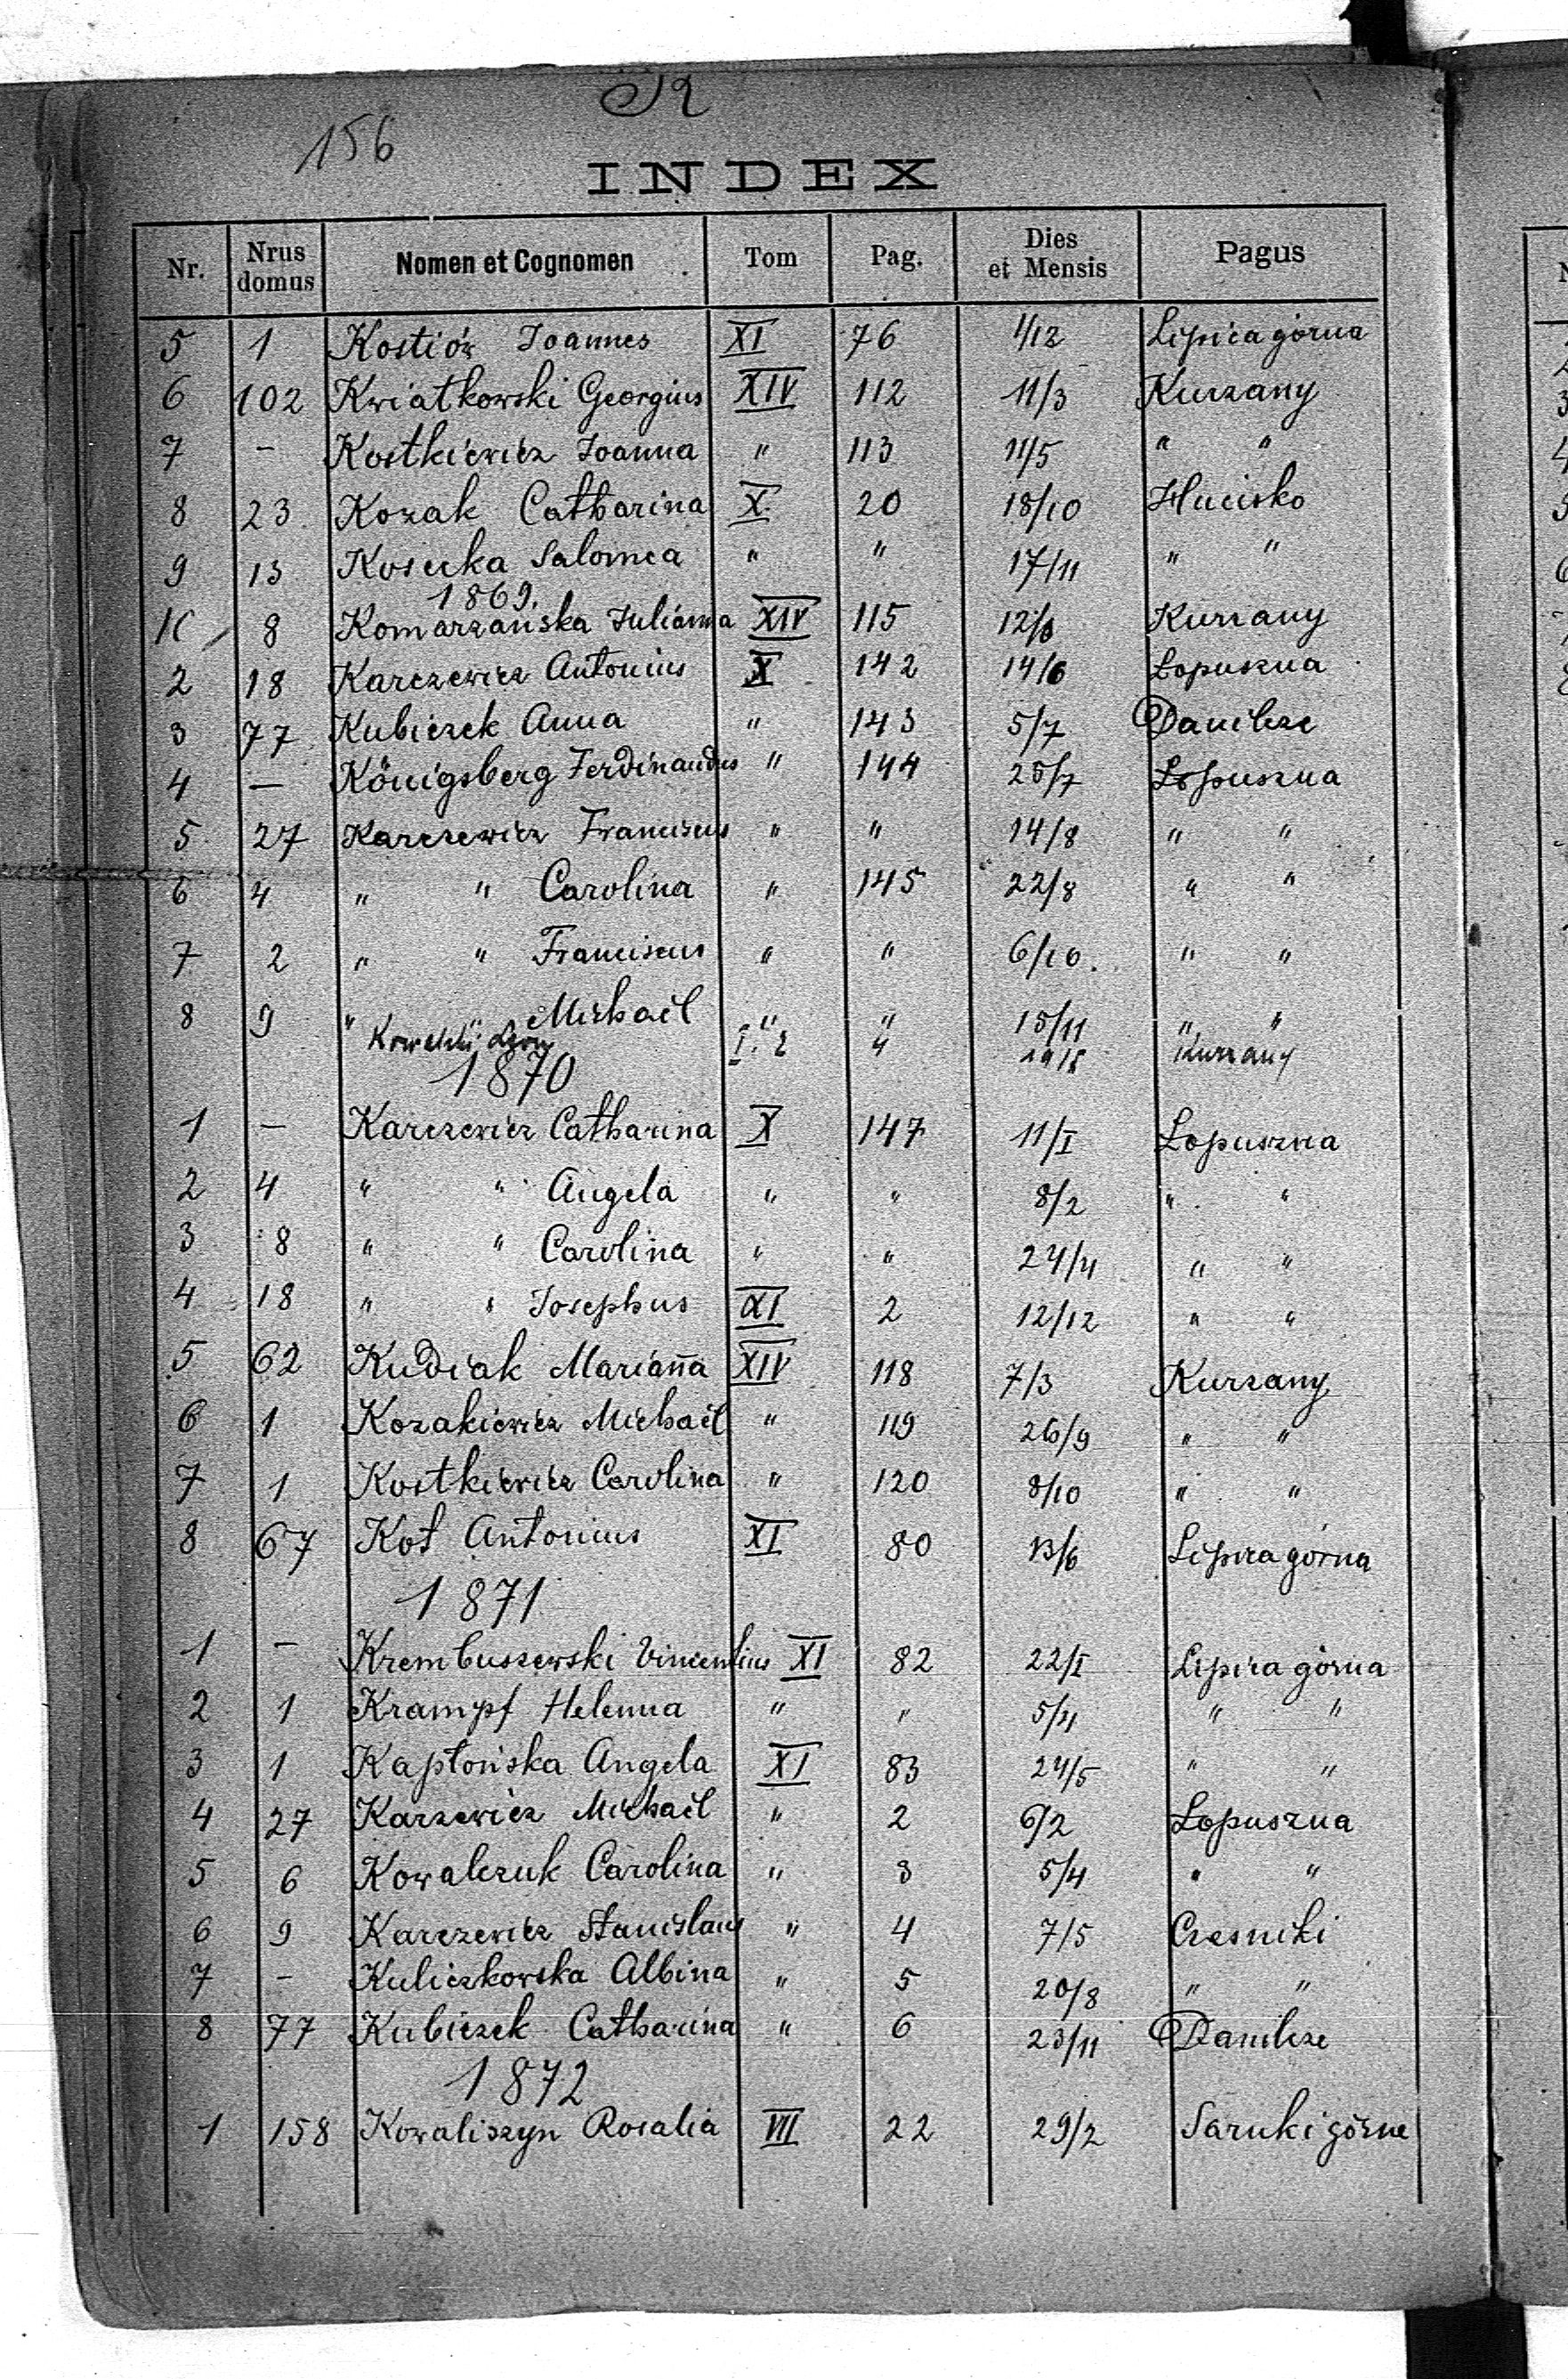 156
K
INDEX
Nr. Nrus domus Nomen et Cognomen Tom Pag. Dies et Mensis Pagus
5 1 Kostiów Joannes XI 76 1/12 Lipica górna
6 102 Kwiatkowski Georgius XIV 112 11/3 Kurzany
7 - Kostkiewicz Joanna " 113 11/5 " "
8 23 Kozak Catharina X. 20 18/10 Hucisko
9 13 Kosecka Salomea " " 17/11 " "
1869.
8 Komarzańska Julianna XIV 115 Kurzany
2 18 Karczewicz Antonius X 142 14/6 Lopuszna
3 77 Kubiczek Anna " 143 5/7 Danilcze
4 — Königsberg Ferdinandus " 144 25/7 Lopuszna
5 27 Karczewicz Franciscus " " 14/8 " "
6 4 " " Carolina " 145 22/8 " "
7 2 " " Franciscus " " 6/10. " "
8 9 " " Michaël " " 15/11 " "
Kowalski Kurzany
1870
1 — Karczewicz Catharina X 147 11/I Lopuszna
2 4 " " Angela " " 8/2 " "
3 8 " " Carolina " " 24/4 " "
4 18 " " Josephus XI 2 12/12 " "
5 62 Kudiak Mariañna XIV 118 7/3 Kurzany
6 1 Kozakiewicz Michaël " 119 26/9 " "
7 1 Kostkiewicz Carolina " 120 8/10 " "
8 67 Kot Antonius XI 80 13/6 Lipica górna
1871
1 — Krembuszewski Vincentius XI 82 22/I Lipica górna
2 1 Krampf Helenna " " 5/4 " "
3 1 Kaptońska Angela XI 83 24/5 " "
4 27 Karzewicz Michaël " 2 6/2 Lopuszna
5 6 Kowalczuk Carolina " 3 5/4 " "
6 9 Karczewicz Stanislaus " 4 7/5 Czesniki
7 - Kuliczkowska Albina " 5 20/8 " "
8 77 Kubiczek Catharina " 6 23/11 Danilcze
1872
1 158 Kowaliszyn Rosalia VII 22 29/2 Sarnki górne